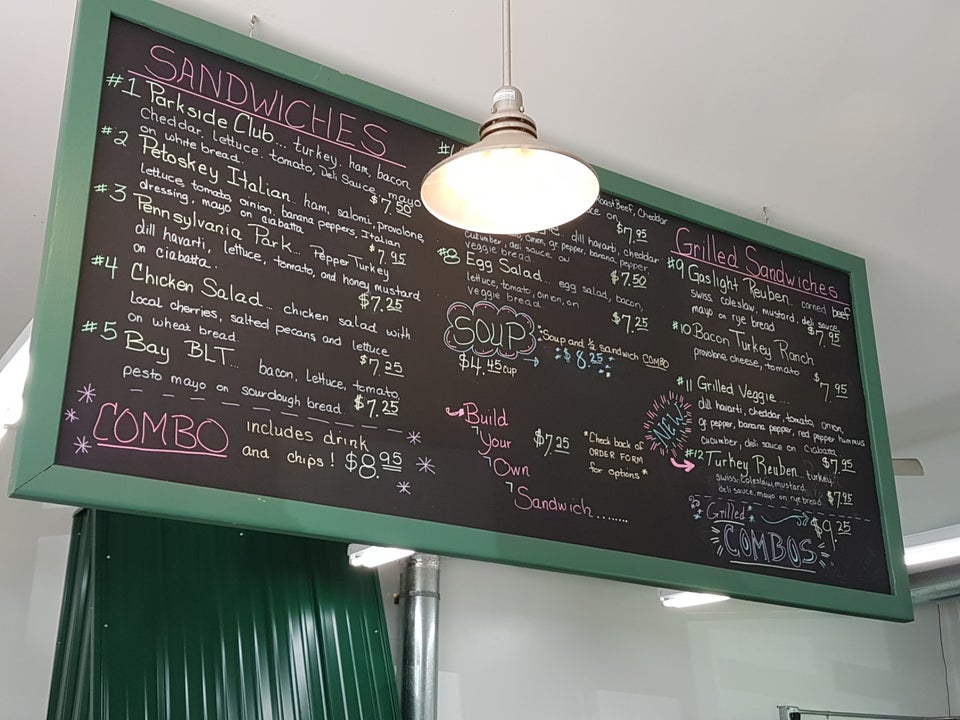 SANDWICHES
#1 Parkside Club... turkey, ham, bacon
cheddar, lettuce, tomato, Deli Sauce, mayo
on white bread. $7.50
#2 Petoskey Italian... ham, salomi, provolone,
lettuce, tomato, oinion, banana peppers, Italian
dressing, mayo on ciabatta $7.95
#3 Pennsylvania Park... Pepper Turkey
dill havarti, lettuce, tomato, and honey mustard
on ciabatta. $7.25
#4 Chicken Salad... chicken salad with
local cherries, salted pecans, and lettuce
on wheat bread. $7.25
#5 Bay BLT... bacon, lettuce, tomato,
pesto mayo on sourdough bread. $7.25
COMBO includes drink
and chips! $8.95
Roast Beef, Cheddar
on,
$7.95
dill havarti, cheddar
cucumber, deli sauce on
onion, gr pepper, banana pepper,
veggie bread $7.50
#8 Egg Salad... egg salad, bacon,
lettuce, tomato, onion, on
veggie bread $7.25
SOUP
$4.45 cup
*Soup and ½ sandwich COMBO
$8.25
Build
Your
Own
Sandwich.......
$7.25
*Check back of
ORDER FORM
for options*
Grilled Sandwiches
#9 Gaslight Reuben... corned beef
swiss, coleslaw, mustard, deli sauce,
mayo on rye bread $7.95
#10 Bacon Turkey Ranch
provolone cheese, tomato
$7.95
#11 Grilled Veggie....
dill havarti, cheddar, tomato, onion,
gr pepper, banana pepper, red pepper hummus
cucumber, deli sauce on ciabatta
$7.95
NEW
#12 Turkey Reuben... turkey,
swiss, coleslaw, mustard,
deli sauce, mayo on rye bread $7.95
Grilled $9.25
COMBOS